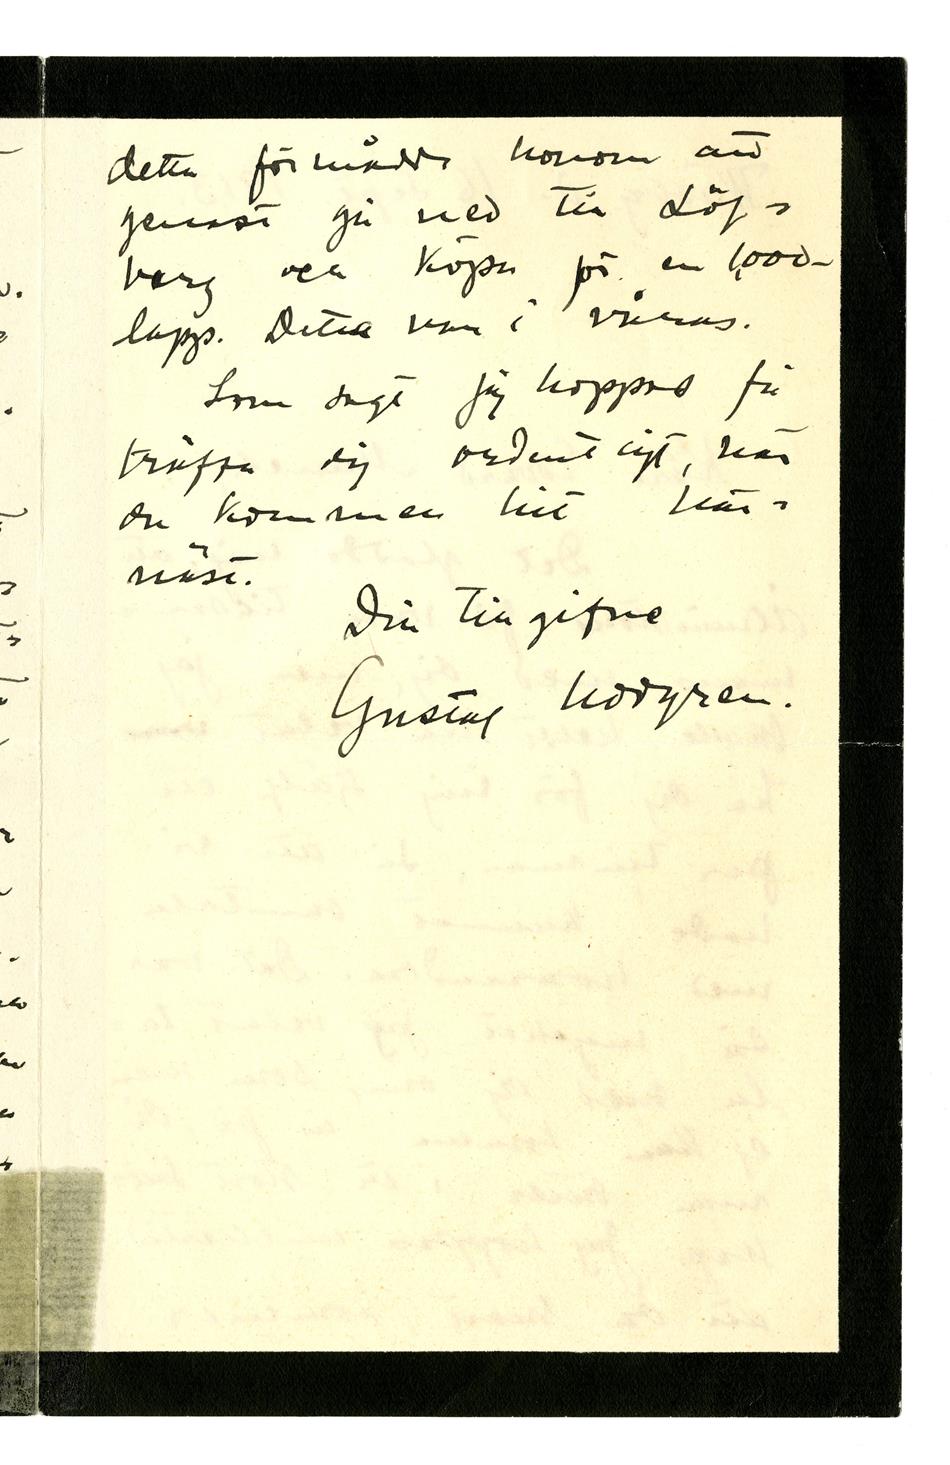 detta förmådde honom att
genast gå ned till Löf-
berg och köpa för en 1,000-
lapp. Detta var i våras.
Som sagt jag hoppas få
träffa dig ordentligt, när
du kommer hit här-
näst.
Din tillgifne
Gustaf Nordgren.